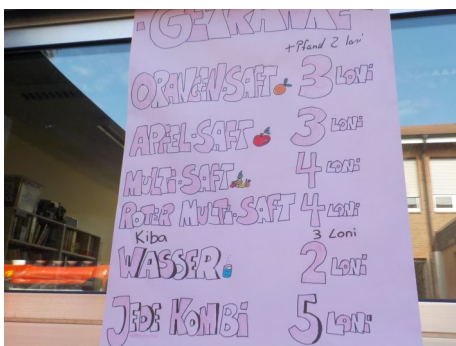 ·GETRÄNKE·
+Pfand 2 loni
ORANGEN-SAFT 3 LONI
APFEL-SAFT 3 LONI
MULTI-SAFT 4 LONI
ROTER MULTI-SAFT 4 LONI
Kiba 3 Loni
WASSER 2 LONI
JEDE KOMBI 5 LONI